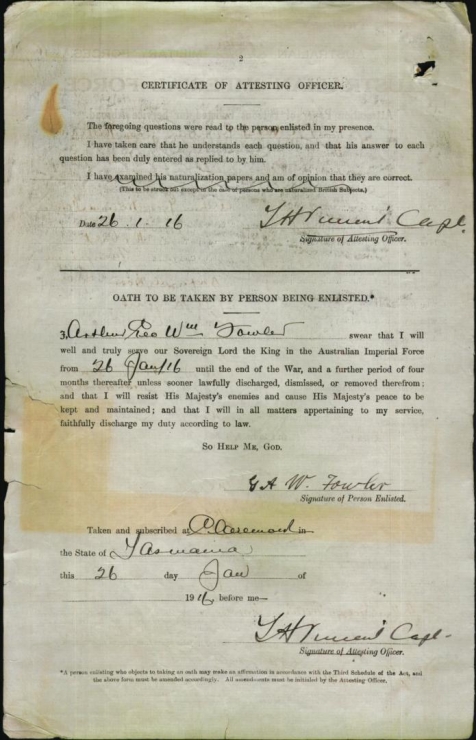 2
CERTIFICATE OF ATTESTING OFFICER.
The foregoing questions were read to the person enlisted in my presence.
I have taken care that he understands each question, and that his answer to each
question has been duly entered as replied to by him.
I have examined his naturalization papers and am of opinion that they are correct.
(This to be struck out except in the case of persons who are naturalized British Subjects.)
Date 26 . 1 . 16
T H Vincent Capt.
Signature of Attesting Officer.
OATH TO BE TAKEN BY PERSON BEING ENLISTED.*
I, Arthur Geo Wm Fowler swear that I will
well and truly serve our Sovereign Lord the King in the Australian Imperial Force
from 26 Jany/16 until the end of the War, and a further period of four
months thereafter unless sooner lawfully discharged, dismissed, or removed therefrom;
and that I will resist His Majesty's enemies and cause His Majesty's peace to be
kept and maintained; and that I will in all matters appertaining to my service,
faithfully discharge my duty according to law.
SO HELP ME, GOD.
G A W. Fowler
Signature of Person Enlisted.
Taken and subscribed at Claremont in
the State of Tasmania
this 26 day Jan of
1916, before me—
T H Vincent Capt.
Signature of Attesting Officer.
*A person enlisting who objects to taking an oath may make an affirmation in accordance with the Third Schedule of the Act, and
the above form must be amended accordingly. All amendments must be initialed by the Attesting Officer.